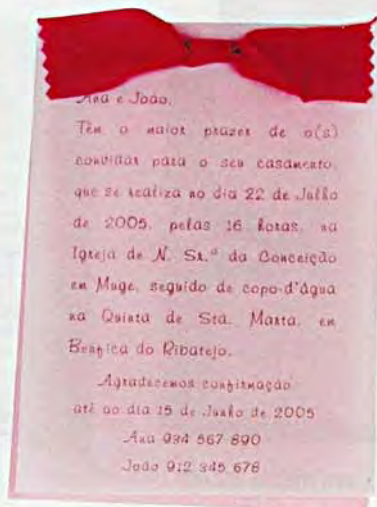 Ana e João,
Têm o maior prazer de o(s)
convidar para o seu casamento,
que se realiza no dia 22 de Julho
de 2005, pelas 16 horas, na
Igreja de N. Sr.ª da Conceição
em Muge, seguido de copo-d'água
na Quinta de Sta. Marta, em
Benfica do Ribatejo.
Agradecemos confirmação
até ao dia 15 de Junho de 2005
Ana 934 567 890
João 912 345 678